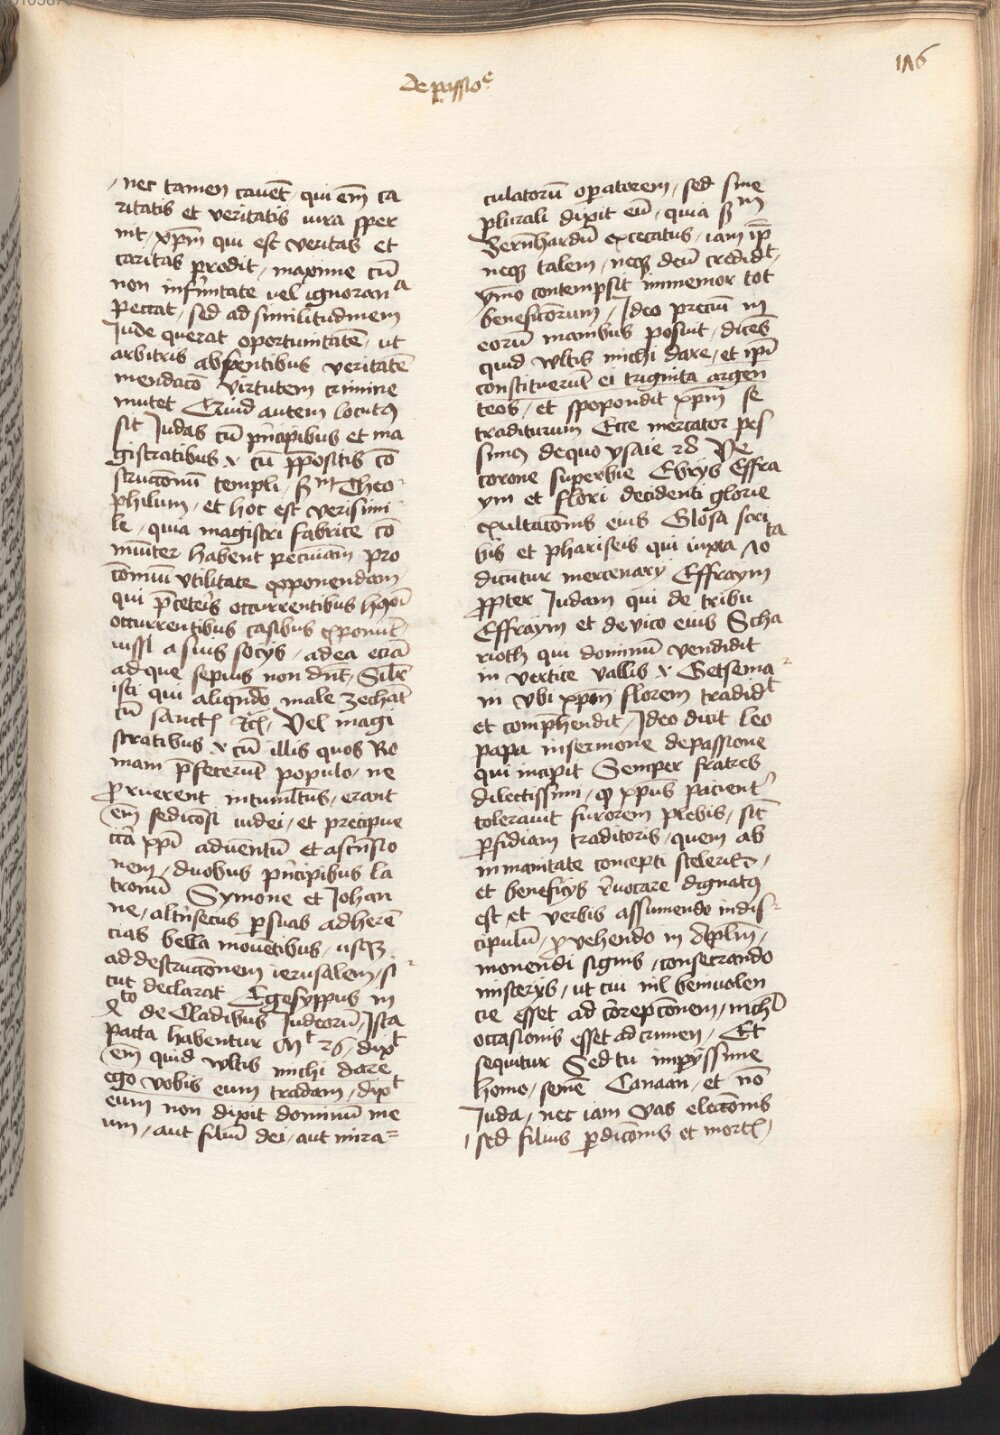 de passioe
186
nec tamen cauet / qui em̄ ca
ritatis et veritatis iura sper
nit / xp̄m qui est veritas et
caritas prodit / maxime cū
non infirmitate vel ignoran
peccat / sed ad similitudinem
Jude querat oportunitatē / ut
arbitris absentibus veritatē
mendacō virtutem crimine
mutet Quid autem locutꝰ
sit Judas cū pn̄cipibus et ma
gistratibus x cū p̄positis cō
structionū templi / sm̄ Theo
philum / et hoc est verisimi
le / quia magistri fabrice cō
muniter habent pecuniam pro
cōmuni vtilitate exponendam
qui p̄ceteris occurrentibus
occurrentibus casibus exponūt
iussi a suis socijs / ad ea eciā
ad que sepius non dn̄t / Silr̄
isti qui aliqn̄do male
cū sanctꝭ rc̄ / Vel magi
stratibus x cū illis quos Ro
mam p̄fecerūt populo / ne
p̱ruerent in tumultus / erant
em̄ sedicōsi iudei / et precipue
citᷓ xp̄i aduentū et ascensio
nem / duobus pn̄cipibus la
tronū Symone et Johan
ne / altrīsecus p̱ suas adherē
cias bella mouētibus / usqꝫ
ad destructionem ierusalem / si
cut declarat Egesyppus in
de Cladibus Judeorū / Ista
pacta habentur Mt 26 / dixt
em̄ quid wltis michi dare
ego vobis eum tradam / dixt
eum non dixit dominū me
um / aut filiū dei / aut mira
culatorū op̱atorem / sed sine
plurali dixit eū / quia sm̄
Bernhardū excecatus / iam ip̄m
neqꝫ talem / neqꝫ deū credidt
ymo contempsit immemor tot
beneficiorum / Ideo preciū in
eorū manibus posuit / dicēs
quid wltis michi dare / et ipi
constituerūt ei triginta argen
teos / et spopondit xp̄m se
traditurum Ecce mercator pes
simꝰ de quo ysaie 28 Ve
corone superbie Ebrijs Effra
ym et flori decidenti glorie
exultacōnis eius Glosa scri
bis et phariseis qui iuxta Jo
dicūtur mercenary Effraym
p̱pter Judam qui de tribu
Effraym et de vico eius Scha
rioth qui dominū vendidit
in vertice vallis x Getsema
in vbi xp̄m florem tradidt
et comp̄hendit / Ideo dicit leo
papa in sermone de passione
qui incipit Semper fratres
dilectissimi / qꝫ xp̄us pacient
tolerauit furorem plebis / sic
p̱fidiam traditoris / quem ab
inmanitate concepti sceleris /
et beneficijs reuocare dignatꝰ
est et verbis assumendo in dis
cipulū / p̱uehendo in aplm̄ /
monendi signis / consecrando
misterijs / ut cui nil beniuolen
cie esset ad correpcōnem / nichil
occasionis esset ad crimen / Et
sequitur Sed tu impijssime
homo / semē Canaan / et nō
Juda / nec iam vas electōnis
sed filius p̱dicōnis et mortꝭ